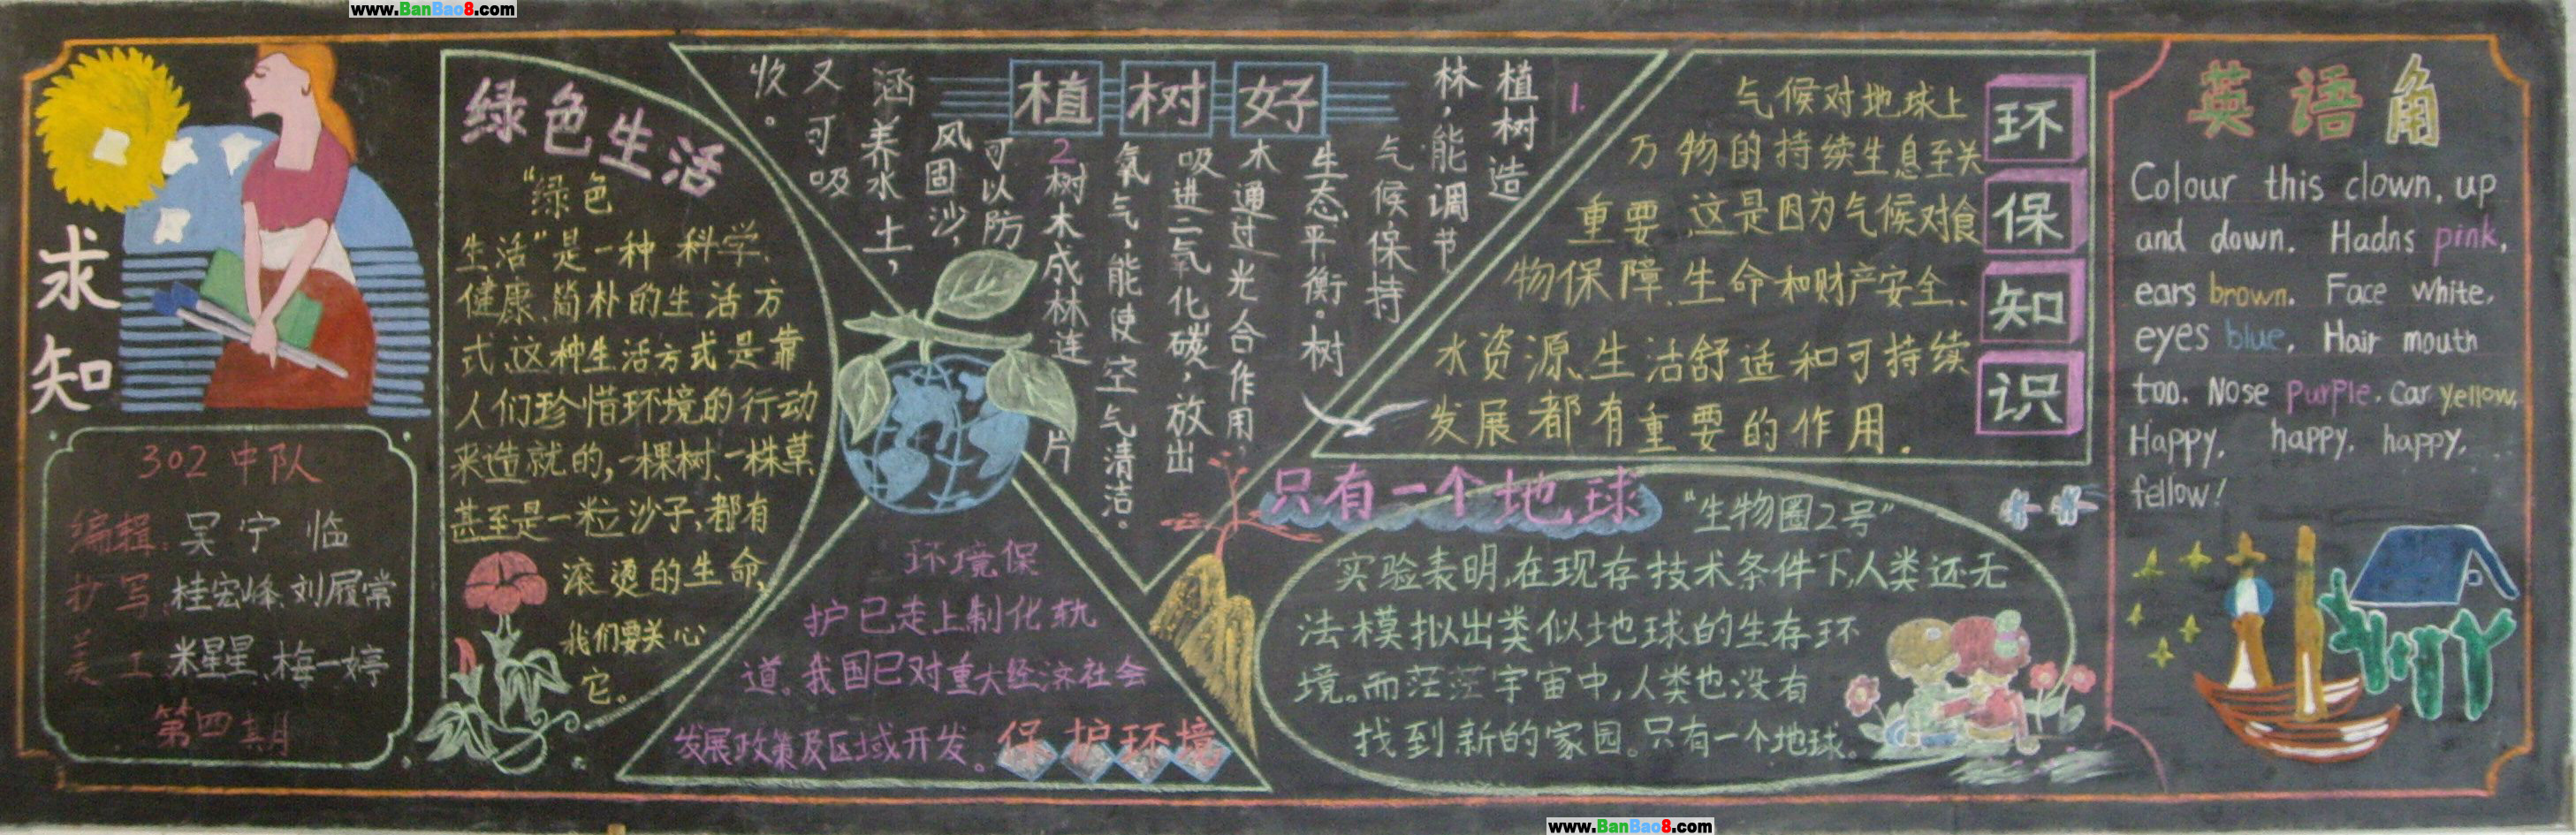 www.BanBao8.com
求知
302中队
编辑:吴宁临
抄写:桂宏峰、刘履常
美工:米星星、梅一婷
第四期
绿色生活
“绿色
生活”是一种科学、
健康、简朴的生活方
式、这种生活方式是靠
人们珍惜环境的行动
来造就的,一棵树、一株草
甚至是一粒沙子,都有
滚烫的生命,
我们要关心
它。
植树好
1.
植树造
林,能调节
气候保持
生态平衡。树
木通过光合作用,
吸进二氧化碳,放出
氧气,能使空气清洁。
2树木成林连片
可以防
风固沙,
涵养水土,
又可吸
收。
环境保
护已走上制化轨
道。我国已对重大经济社会
发展政策及区域开发。
保护环境
环保知识
气候对地球上
万物的持续生息至关
重要.这是因为气候对食
物保障、生命和财产安全、
水资源、生活舒适和可持续
发展都有重要的作用.
只有一个地球
“生物圈2号”
实验表明,在现存技术条件下,人类还无
法模拟出类似地球的生存环
境。而茫茫宇宙中,人类也没有
找到新的家园。只有一个地球。
英语角
Colour this clown. up
and down. Hadns pink.
ears brown. Face white.
eyes blue. Hair mouth
too. Nose purple. Car yellow.
Happy. happy. happy....
fellow!
www.BanBao8.com